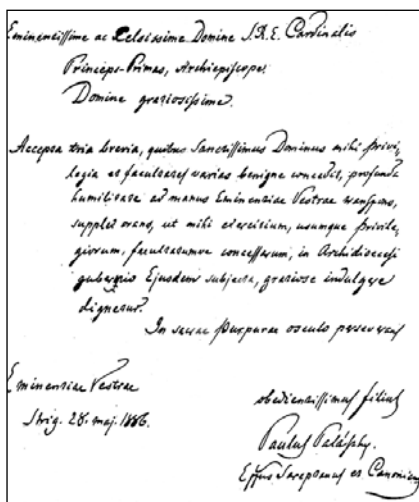 Eminentissime ac Celsissime Domine S.R.E. Cardinalis
Princeps-Primas, Archiepiscope!
Domine gratiosissime.
Accepta tria brevia, quibus Sanctissimus Dominus mihi privi-
legia et facultates varias benigne concedit, profunda
humilitate ad manus Eminentiae Vestrae transpono,
supplex orans, ut mihi exercitium, usumque privile-
giorum, facultatumve concessarum, in Archidioecesi
gubernio Ejusdem subjecta, gratiose indulgere
dignetur.
In sacrae purpurae osculo persevero
Eminentiae Vestrae
Strig. 28. maj. 1886.
obedientissimus filius
Paulus Palásthy.
Eppus Sareptanus et Canonicus